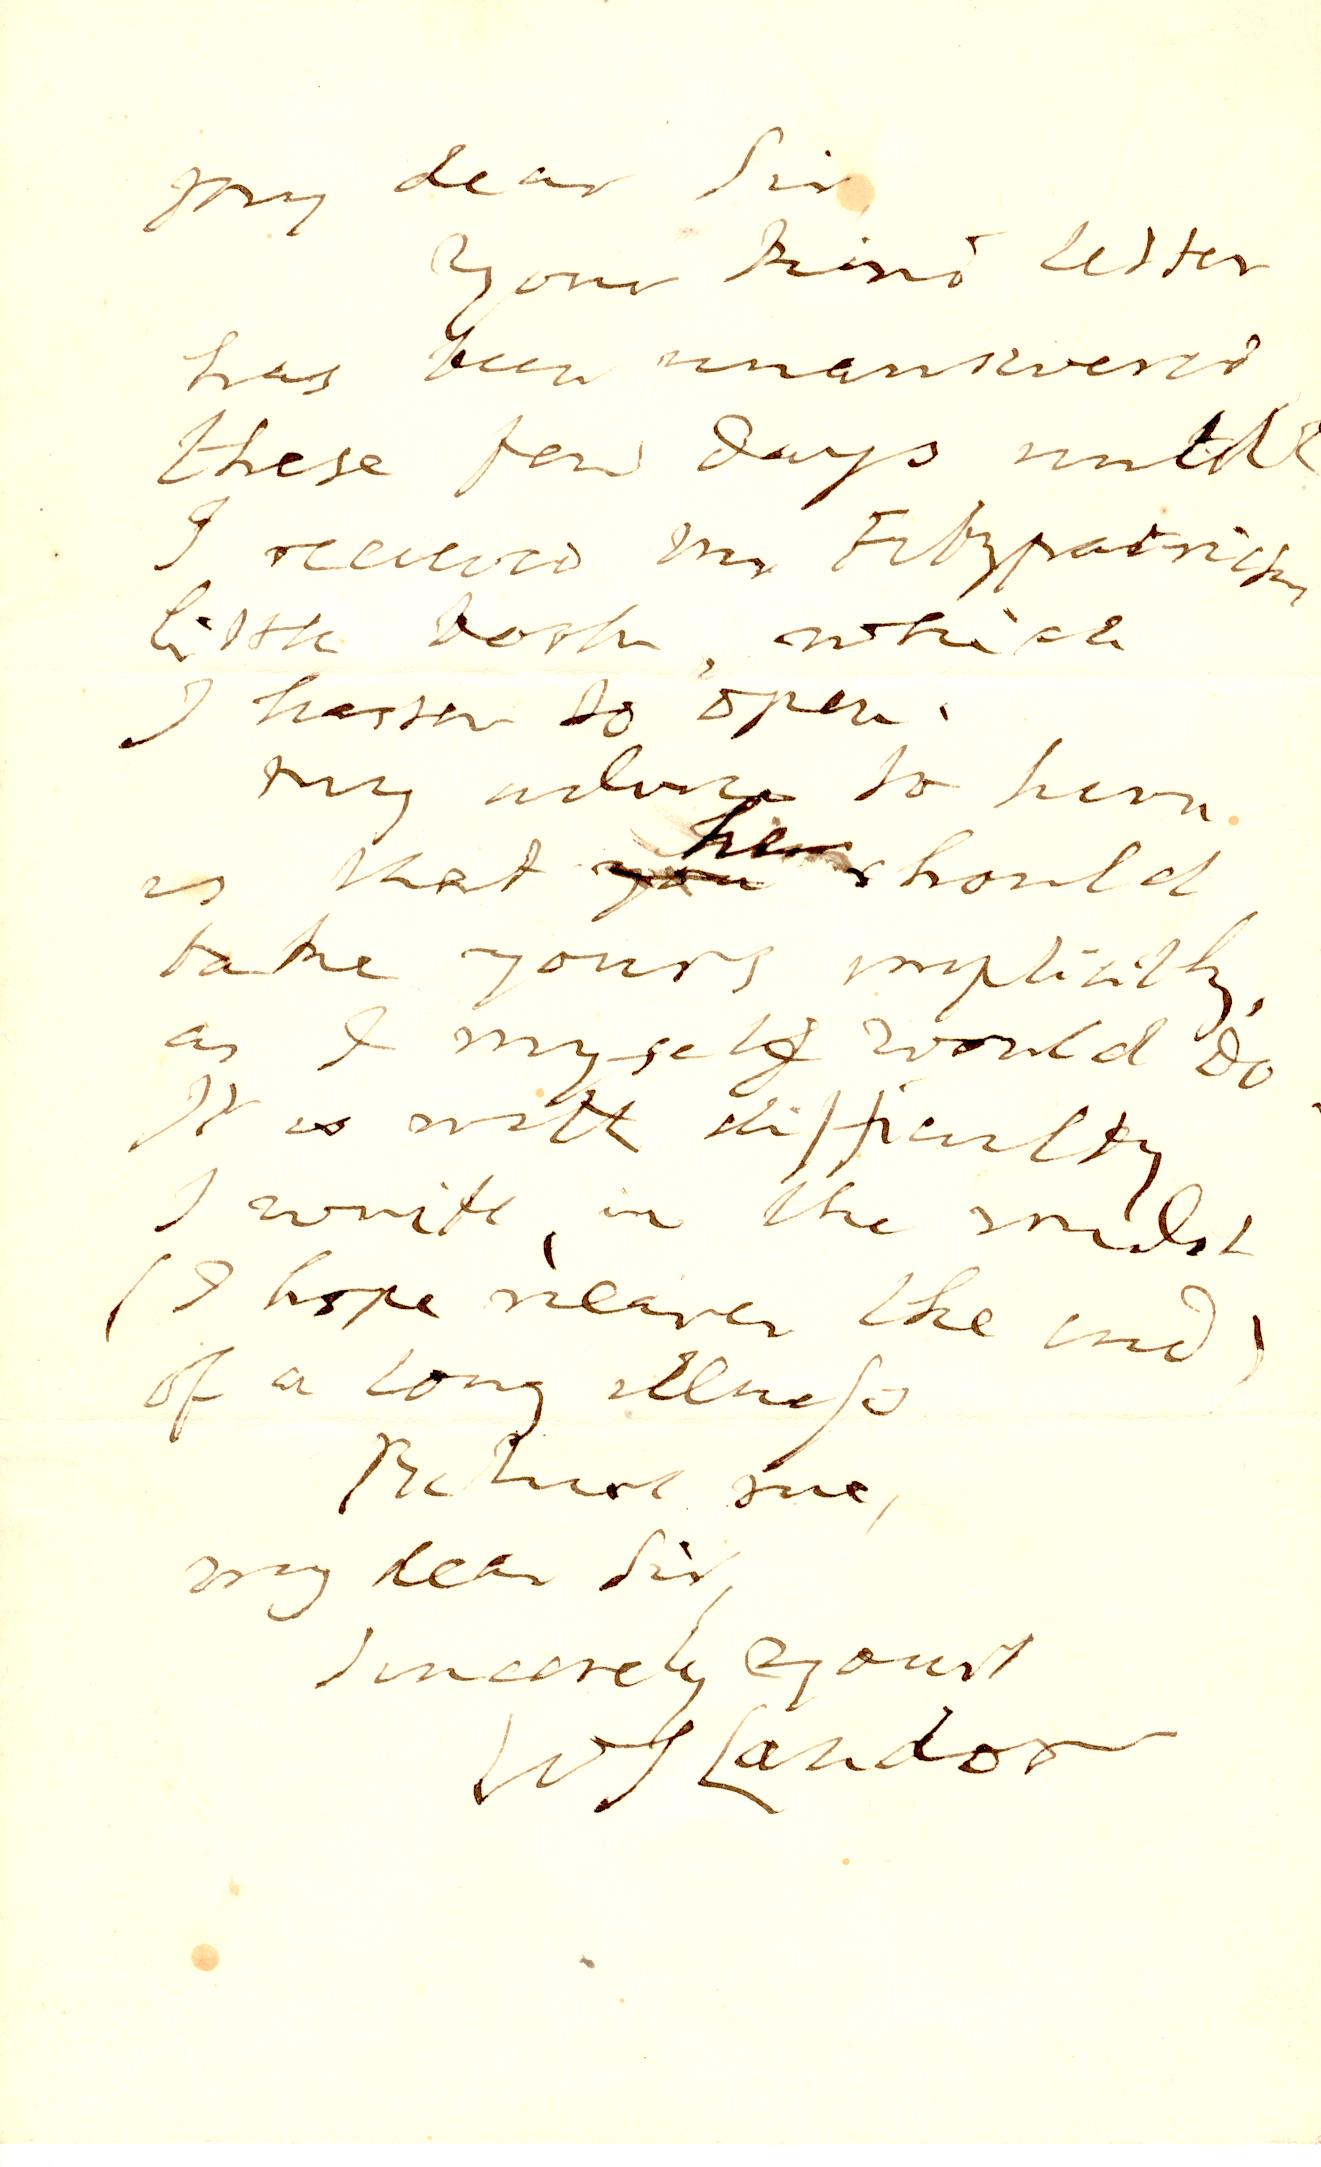 My dear Sir,
Your kind letter
has been unanswered
these few days until
I received Mr Fitzpatricks
little book, which
I hasten to open.
My advice to him
is that he should
take yours implicitly,
as I myself would do.
It is with difficulty
I write, in the midst
(I hope nearer the end)
of a long illness
Believe me,
my dear Sir,
Sincerely yours
W S Landor